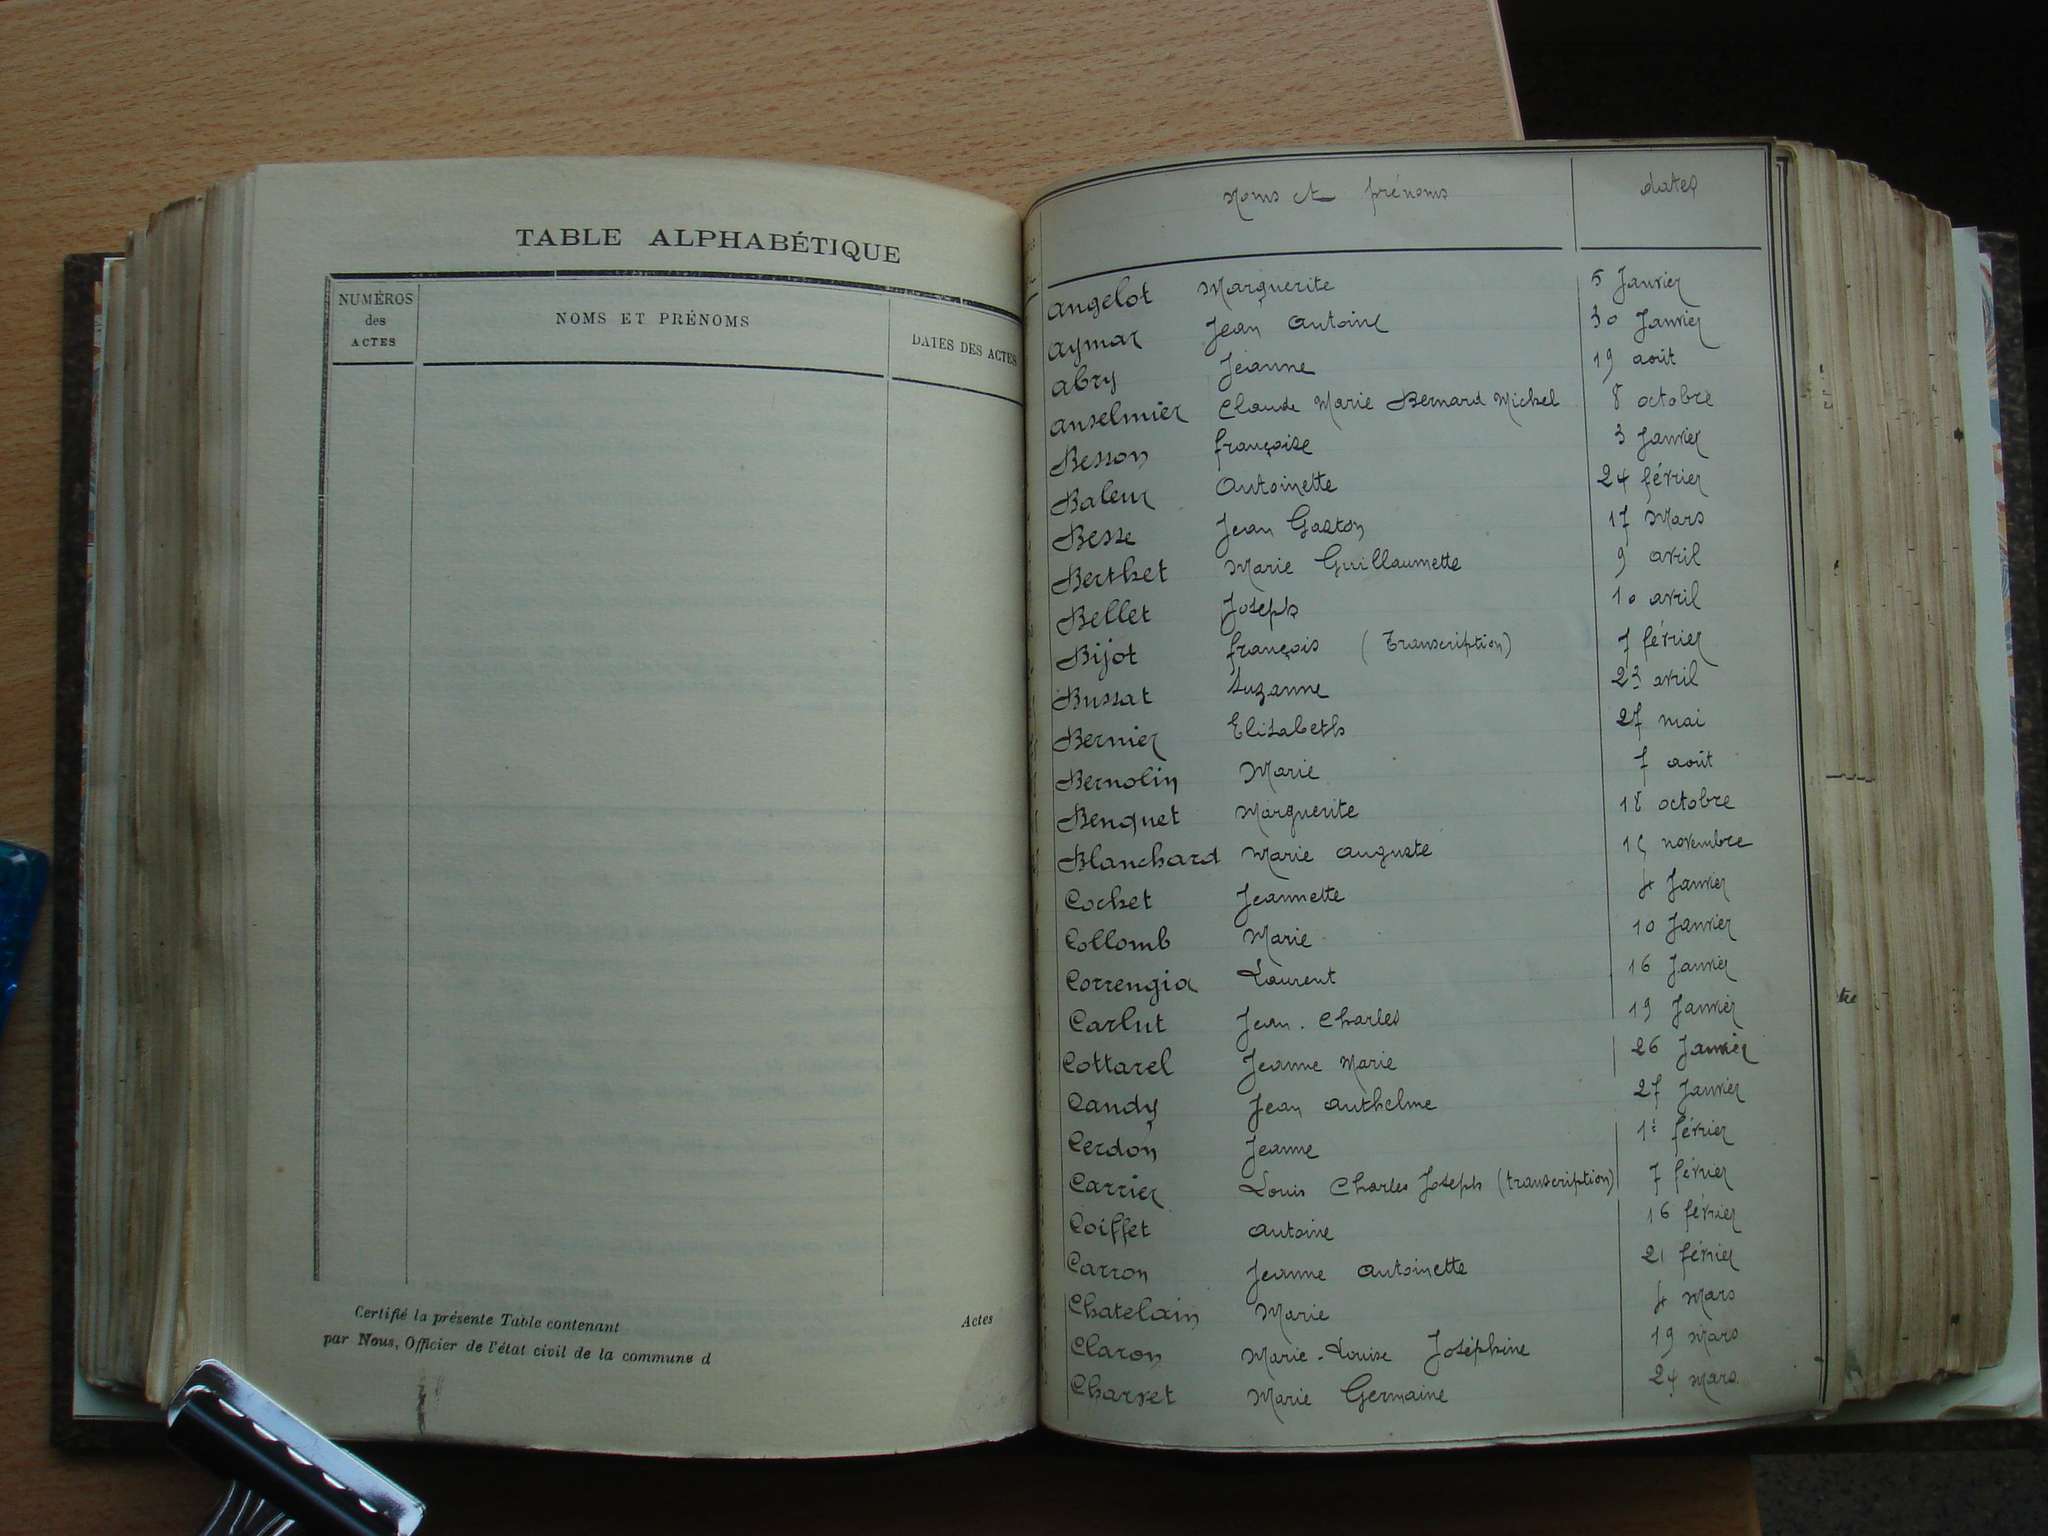 TABLE ALPHABÉTIQUE
NUMÉROS
des
ACTES
NOMS ET PRÉNOMS
DATES DES ACTES
Certifié la présente Table contenant
Actes
par Nous, Officier de l'état civil de la commune d
Noms et prénoms dates
Angelot Marguerite 5 Janvier
Aymar Jean Antoine 30 Janvier
Abry Jeanne 19 août
Anselmier Claude Marie Bernard Michel 8 octobre
Besson françoise 3 Janvier
Baleur Antoinette 24 février
Besse Jean Gaston 17 Mars
Berthet Marie Guillaumette 9 avril
Bellet Joseph 10 avril
Bijot françois (Transcription) 7 février
Bussat Suzanne 23 avril
Bernier Elisabeth 27 mai
Bernolin Marie 7 août
Benquet Marguerite 18 octobre
Blanchard Marie Auguste 15 novembre
Cochet Jeannette 4 Janvier
Collomb Marie 10 Janvier
Correngia Laurent 16 Janvier
Carlut Jean. Charles 19 Janvier
Cottarel Jeanne Marie 26 Janvier
Candy Jean Anthelme 27 Janvier
Cerdon Jeanne 1er février
Carrier Louis Charles Joseph (transcription) 7 février
Coiffet Antoine 16 février
Carron Jeanne Antoinette 21 février
Chatelain Marie 4 Mars
Claron Marie-Louise Joséphine 19 Mars
Charvet Marie Germaine 24 Mars